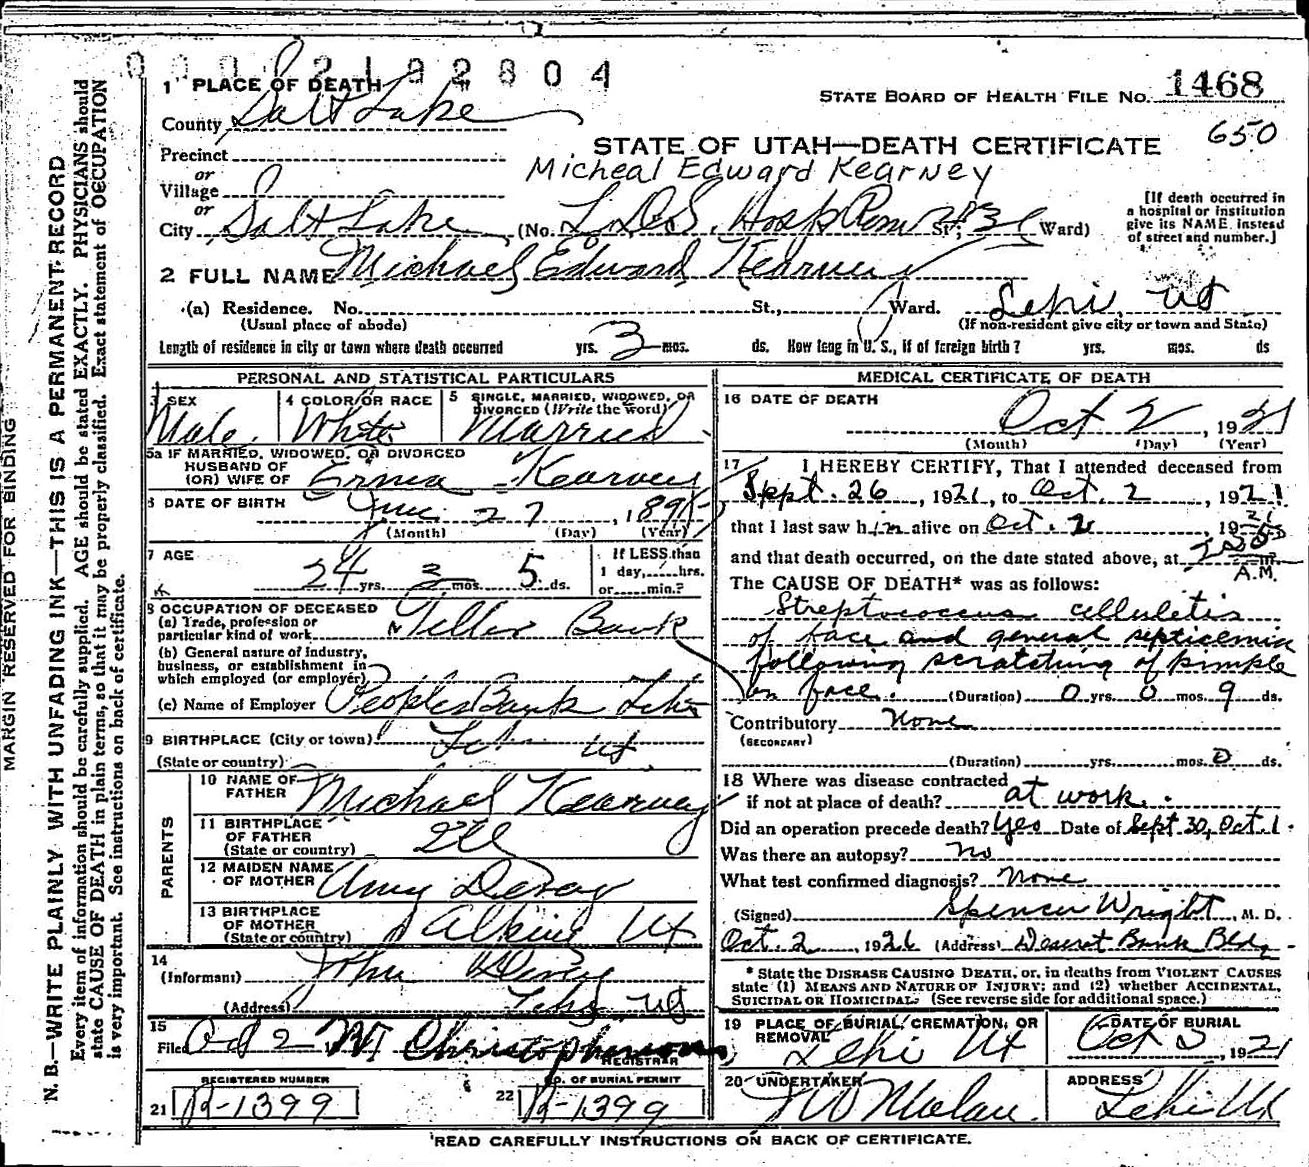 00002192804
1 PLACE OF DEATH
STATE BOARD OF HEALTH FILE No. 1468
County Salt Lake
STATE OF UTAH—DEATH CERTIFICATE 650
Precinct
Micheal Edward Kearney
or
Village
or
City Salt Lake (No. L.D.S. Hosp St.; Ward)
[If death occurred in
a hospital or institution
give its NAME instead
of street and number.]
2 FULL NAME Michael Edward Kearney
(a) Residence. No. St., Ward. Lehi, Ut
(Usual place of abode) (If non-resident give city or town and State)
Length of residence in city or town where death occurred yrs. 3 mos. ds. How long in U. S., if of foreign birth? yrs. mos. ds
PERSONAL AND STATISTICAL PARTICULARS
3 SEX Male
4 COLOR OR RACE White
5 SINGLE, MARRIED, WIDOWED, OR
DIVORCED (Write the word) Married
5a IF MARRIED, WIDOWED, OR DIVORCED
HUSBAND OF
(OR) WIFE OF Erma Kearney
6 DATE OF BIRTH
27, 189
(Month) (Day) (Year)
7 AGE
24 yrs. mos. 5 ds.
If LESS than
1 day, hrs.
or min.?
8 OCCUPATION OF DECEASED
(a) Trade, profession or
particular kind of work Teller Bank
(b) General nature of industry,
business, or establishment in
which employed (or employer)
(c) Name of Employer Peoples Bank Lehi
9 BIRTHPLACE (City or town) Lehi Ut.
(State or country)
PARENTS
10 NAME OF
FATHER Michael Kearney
11 BIRTHPLACE
OF FATHER
(State or country) Ill
12 MAIDEN NAME
OF MOTHER Amy Devey
13 BIRTHPLACE
OF MOTHER
(State or country) Alpine Ut
14
(Informant) John Devey
(Address) Lehi Ut
15
Filed Oct 2 Christopherson
REGISTRAR
REGISTERED NUMBER
21 R-1399
NO. OF BURIAL PERMIT
22 R-1399
MEDICAL CERTIFICATE OF DEATH
16 DATE OF DEATH
Oct 2, 1921
(Month) (Day) (Year)
17 I HEREBY CERTIFY, That I attended deceased from
Sept. 26, 1921, to Oct. 2, 1921
that I last saw him alive on Oct. 2 1921
and that death occurred, on the date stated above, at
A.M.
The CAUSE OF DEATH* was as follows:
Streptococcus cellulitis
of face and general septicemia
following scratching of pimple
on face. (Duration) 0 yrs. 0 mos. 9 ds.
Contributory None
(SECONDARY)
(Duration) yrs. mos. 0 ds.
18 Where was disease contracted
if not at place of death? at work.
Did an operation precede death? Yes Date of Sept 30, Oct. 1.
Was there an autopsy? No
What test confirmed diagnosis? None
(Signed) Spencer Wright, M. D.
Oct. 2, 1921 (Address) Deseret Bank Bldg
* State the DISEASE CAUSING DEATH, or, in deaths from VIOLENT CAUSES
state (1) MEANS AND NATURE OF INJURY; and (2) whether ACCIDENTAL,
SUICIDAL OR HOMICIDAL. (See reverse side for additional space.)
19 PLACE OF BURIAL, CREMATION, OR
REMOVAL Lehi Ut
DATE OF BURIAL
Oct, 1921
20 UNDERTAKER
ADDRESS
Lehi Ut
READ CAREFULLY INSTRUCTIONS ON BACK OF CERTIFICATE.
MARGIN RESERVED FOR BINDING
N. B.—WRITE PLAINLY WITH UNFADING INK—THIS IS A PERMANENT RECORD
Every item of information should be carefully supplied. AGE should be stated EXACTLY. PHYSICIANS should
state CAUSE OF DEATH in plain terms, so that it may be properly classified. Exact statement of OCCUPATION
is very important. See instructions on back of certificate.